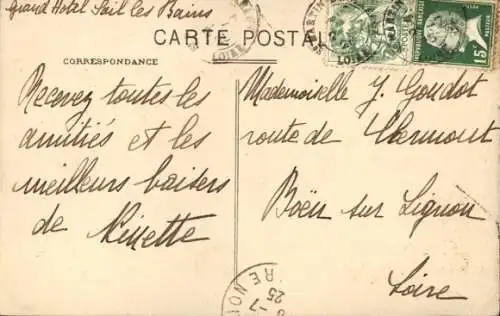 Grand Hôtel Sail les Bains
CARTE POSTALE
CORRESPONDANCE
Recevez toutes les
amitiés et les
meilleurs baisers
de Ninette
Mademoiselle J. Goudot
route de Clermont
Boën sur Lignon
Loire
15
LOIRE
LOIRE
RE NO
-7
25